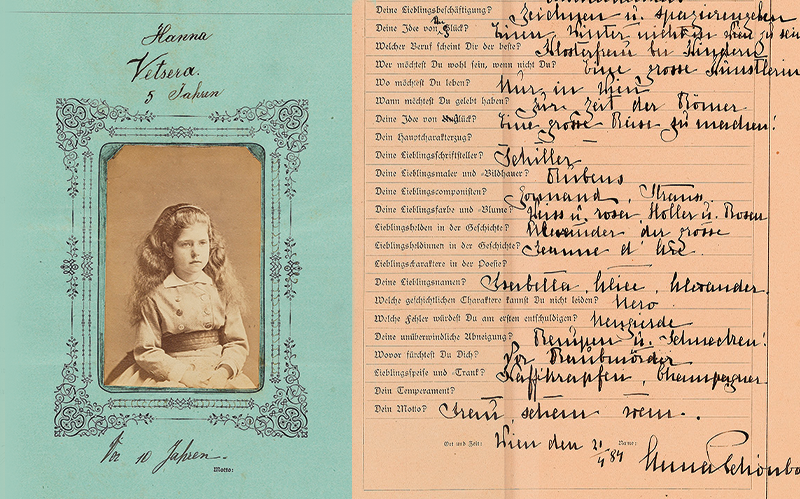 Hanna
Vetsera.
5 Jahren
Vor 10 Jahren.
Motto:
Deine Lieblingsbeschäftigung? Zeichnen u. spazierengehen
Deine Idee von Glück? Einen Winter nicht in Wien zu sein
Welcher Beruf scheint Dir der beste? Klosterfrau bei Kindern
Wer möchtest Du wohl sein, wenn nicht Du? Eine grosse Künstlerin
Wo möchtest Du leben? Nur in Wien
Wann möchtest Du gelebt haben? Zur Zeit der Römer
Deine Idee von Unglück? Eine grosse Reise zu machen!
Dein Hauptcharakterzug?
Deine Lieblingsschriftsteller? Schiller
Deine Lieblingsmaler und -Bildhauer? Rubens
Deine Lieblingscomponisten? Gounand, Strauss
Deine Lieblingsfarbe und -Blume? u. rosa, Holler u. Rosen
Lieblingshelden in der Geschichte? Alexander der grosse
Lieblingsheldinnen in der Geschichte? Jeanne d'Arc.
Lieblingscharaktere in der Poesie?
Deine Lieblingsnamen? Isabella, Alice, Alexander.
Welche geschichtlichen Charaktere kannst Du nicht leiden? Nero
Welche Fehler würdest Du am ersten entschuldigen? Neugierde
Deine unüberwindliche Abneigung? Raupen u. Schnecken!
Wovor fürchtest Du Dich? Vor Raubmörder
Lieblingsspeise und -Trank? Faschkrapfen, Champagner
Dein Temperament?
Dein Motto? Trau schau wem..
Ort und Zeit: Wien den 21/4 84 Name: